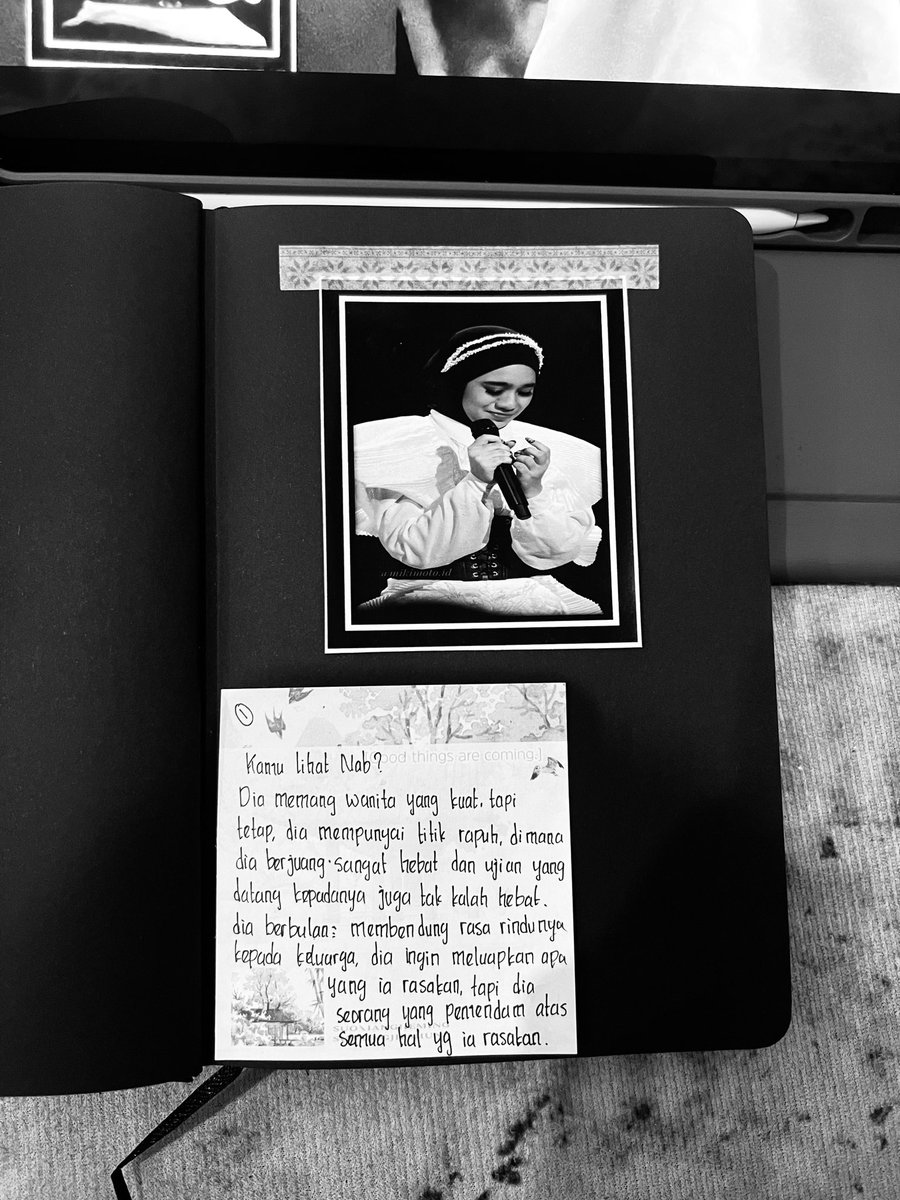 amikimoto.id
1
[Good things are coming.]
Kamu lihat Nab?
Dia memang wanita yang kuat, tapi
tetap, dia mempunyai titik rapuh, dimana
dia berjuang sangat hebat dan ujian yang
datang kepadanya juga tak kalah hebat.
dia berbulan2 membendung rasa rindunya
kepada keluarga, dia ingin meluapkan apa
yang ia rasakan, tapi dia
seorang yang pemendam atas
semua hal yg ia rasakan.